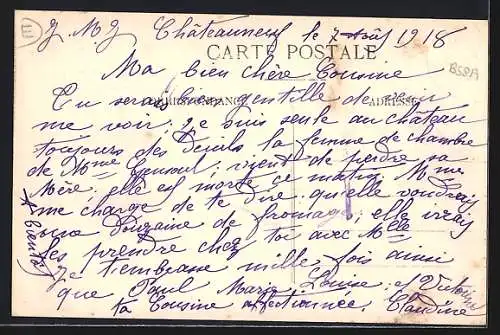 J. M. J. Châteauneuf le 7 Août 1918
CARTE POSTALE
B58A
Ma bien chère Cousine
Tu serais bien gentille de venir
CORRESPONDANCE ADRESSE
me voir; je suis seule au château
toujours des Deuils la femme de chambre
de Mme vient de perdre sa
Mère; elle est morte ce matin; Mme
me charge de te dire qu'elle voudrais
une Douzaine de fromages; elle irais
les prendre chez toi avec Melle
Je t'embrasse mille fois ainsi
que Paul Marie, Louise; et Victoire
ta Cousine affectionnée, Claudine
A bientôt